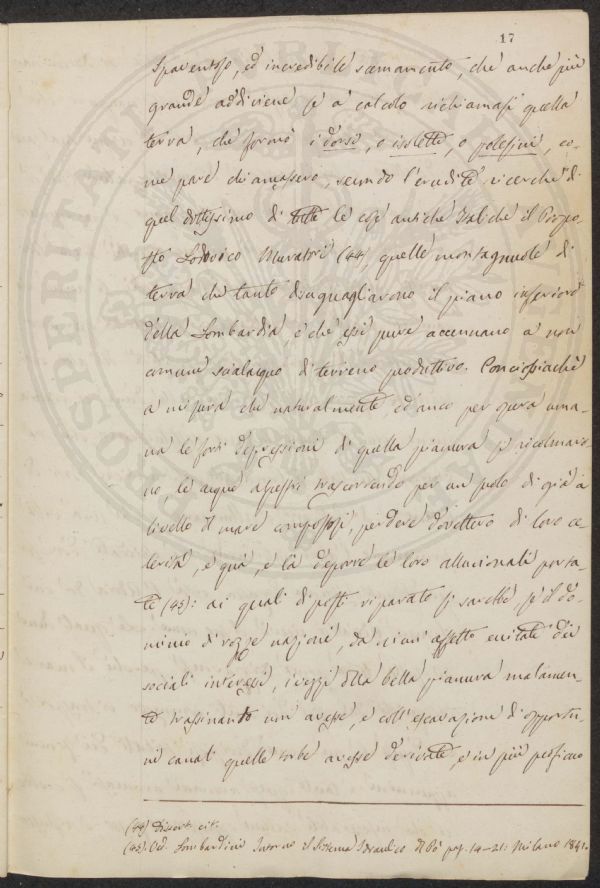 17
spaventoso, ed incredibile scemamento, che anche più
grande addiviene se a calcolo richiamasi quella
terra, che formò i dorsi, o isolette, o polesini, co-
me pare chiamassero, secondo l'erudite ricerche di
quel dottissimo di tutte le cose antiche Italiche il Propo-
sto Lodovico Muratori (44), quelle montagnuole di
terra che tanto disuguagliarono il piano inferiore
della Lombardia, e che esse pure accennano a non
comune scialacquo di terreno produttivo. Conciossiachè
a misura che naturalmente ed anco per opera uma-
na le forti depressioni di quella pianura si ricolmaro-
no, le acque trascorrendo per un suolo di già a
livello il mare compostosi, perdere dovettero di loro ce-
lerità, e quà, e là deporre le loro alluvionali porta-
te (45): ai quali riparato si sarebbe, se il do-
minio di rozze nazioni, da niun affetto eccitate dei
sociali interessi, i vezzi della bella pianura malamen-
te trassinando non avesse, e coll'escavazione di opportu-
ni canali quelle torbe avesse derivate, e in più proficuo
(44) Dissert. cit.
(45). Lombardini Intorno il Sistema Idraulico del Pò pag. 19-21: Milano 1841.